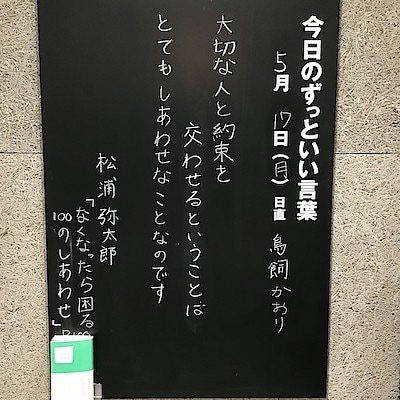 今日のずっといい言葉
5月 17日(月) 日直 鳥飼かおり
大切な人と約束を
交わせるということは
とてもしあわせなことなのです
松浦弥太郎
「なくなったら困る
100のしあわせ」